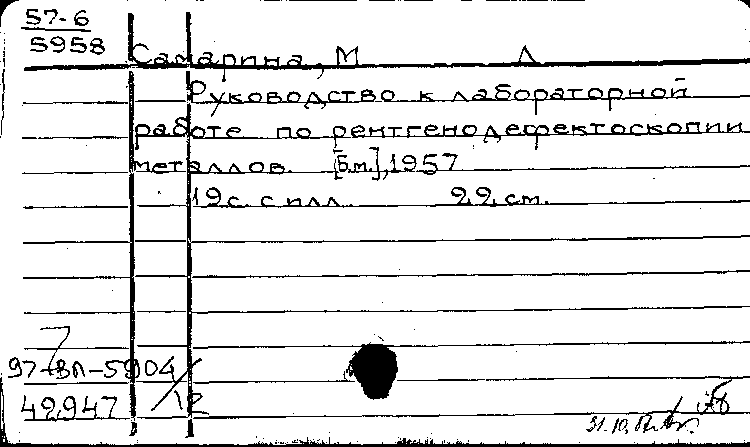 57-6
5958
Самарина, М Л
Руководство к лабораторной
работе по рентгенодефектоскопии
металлов. [Б.м.], 1957
19 с. с илл. 22 см.
97-ВЛ-5904/12
42947
31.10.